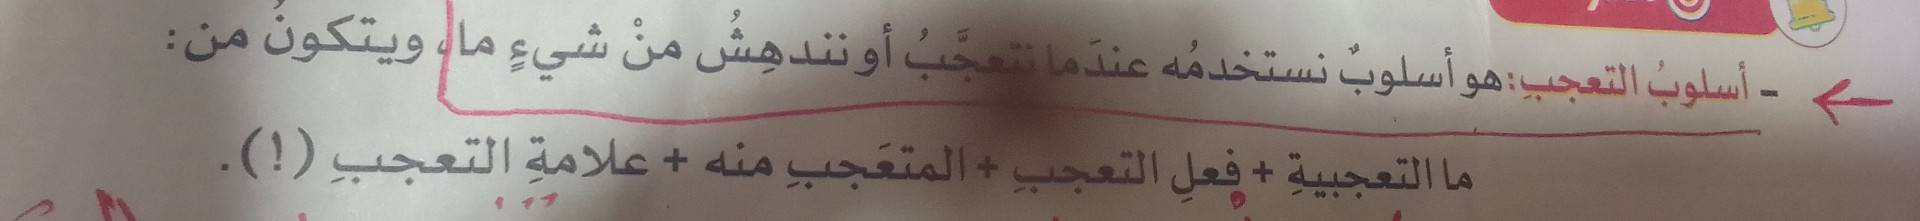 - أسلوبُ التعجبِ: هو أسلوبٌ نستخدمُه عندَما نتعجَّبُ أو نندهِشُ منْ شيءٍ ما، ويتكونُ من:
ما التعجبيةِ + فعلِ التعجبِ + المتعَجبِ منه + علامةِ التعجبِ (!).